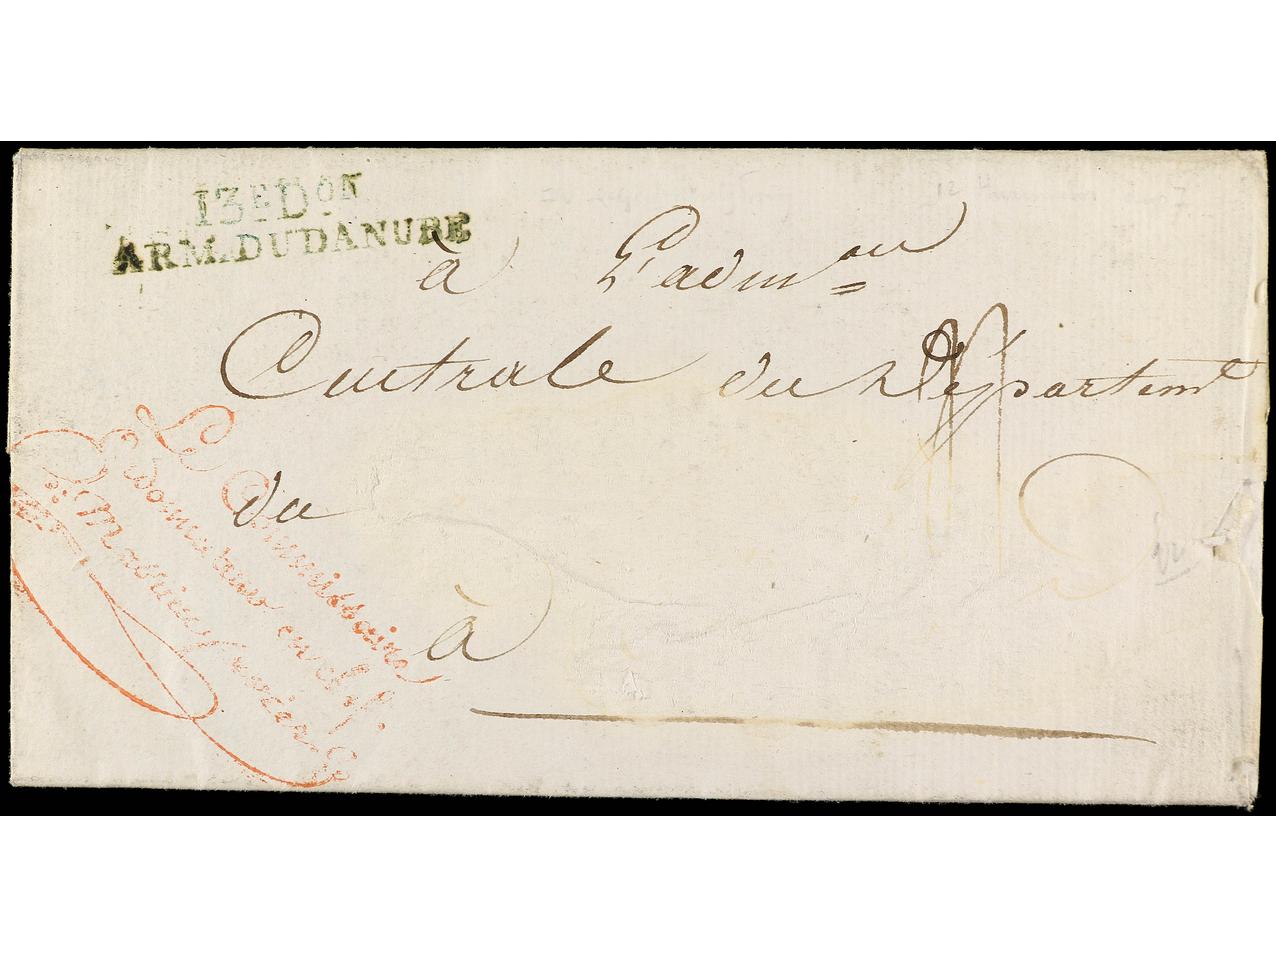 13E DON
ARM. DU DANUBE
à L'adm.on
Centrale du Département
du
à
Le Commissaire
Ordonnateur en chef